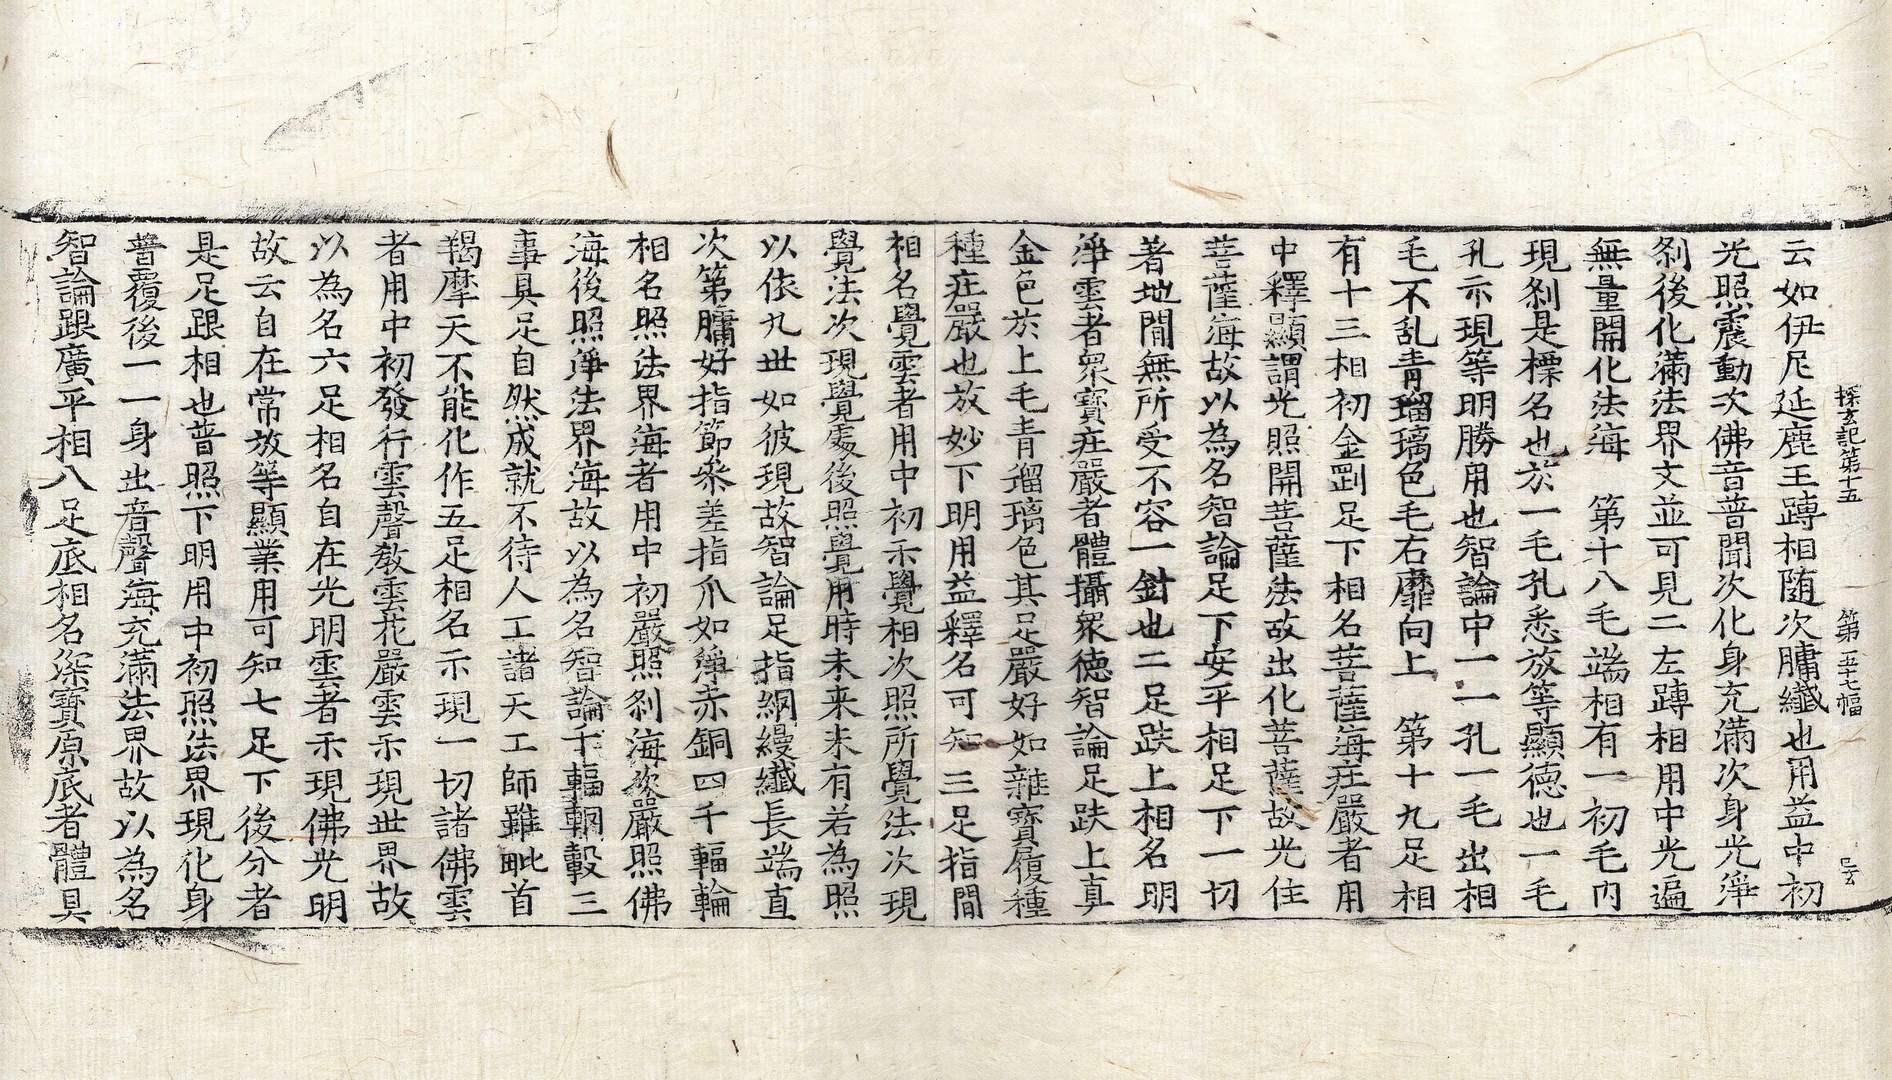 探玄記第十五　第二十七幅　云
云如伊尼延鹿王𨄔相随次𦟛纎也用益中初
光照震動次佛音普聞次化身充滿次身光淨
刹後化滿法界文並可見二左𨄔相用中光遍
無量開化法海　第十八毛端相有一初毛內
現刹是標名也於一毛孔悉放等顯德也一毛
孔示現等明勝用也智論中一一孔一毛出相
毛不乱青瑠璃色毛右靡向上　第十九足相
有十三相初金剄足下相名菩薩海庄嚴者用
中釋顯謂光照開菩薩法故出化菩薩故光住
菩薩海故以為名智論足下安平相足下一切
著地間無所受不容一針也二足趺上相名明
淨雲者衆寶庄嚴者體攝衆德智論足趺上真
金色於上毛青瑠璃色其足嚴好如雜寶履種
種庄嚴也放妙下明用益釋名可知三足指間
相名覺雲者用中初示覺相次照所覺法次現
覺法次現覺處後照覺用時未来未有若為照
以依九世如彼現故智論足指網縵纎長端直
次第𦟛好指節叅差指爪如淨赤銅四千輻輪
相名照法界海者用中初嚴照刹海次嚴照佛
海後照淨法界海故以為名智論千輻輞轂三
事具足自然成就不待人工諸天工師雖毗首
羯摩天不能化作五足相名示現一切諸佛雲
者用中初發行雲聲教雲花嚴雲示現世界故
以為名六足相名自在光明雲者示現佛光明
故云自在常放等顯業用可知七足下後分者
是足跟相也普照下明用中初照法界現化身
普覆後一一身出音聲海充滿法界故以為名
智論跟廣平相八足底相名深寶原底者體具